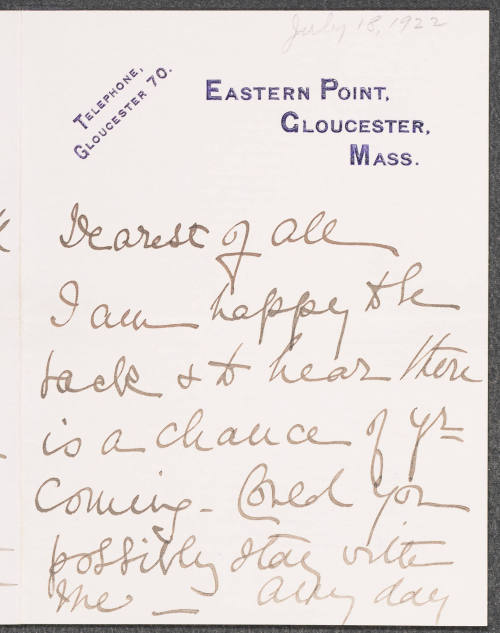 July 18, 1922
Telephone,
Gloucester 70.
Eastern Point,
Gloucester,
Mass.
Dearest of all
I am happy to be
back & to hear there
is a chance of yr
coming - Could you
possibly stay with
me - any day